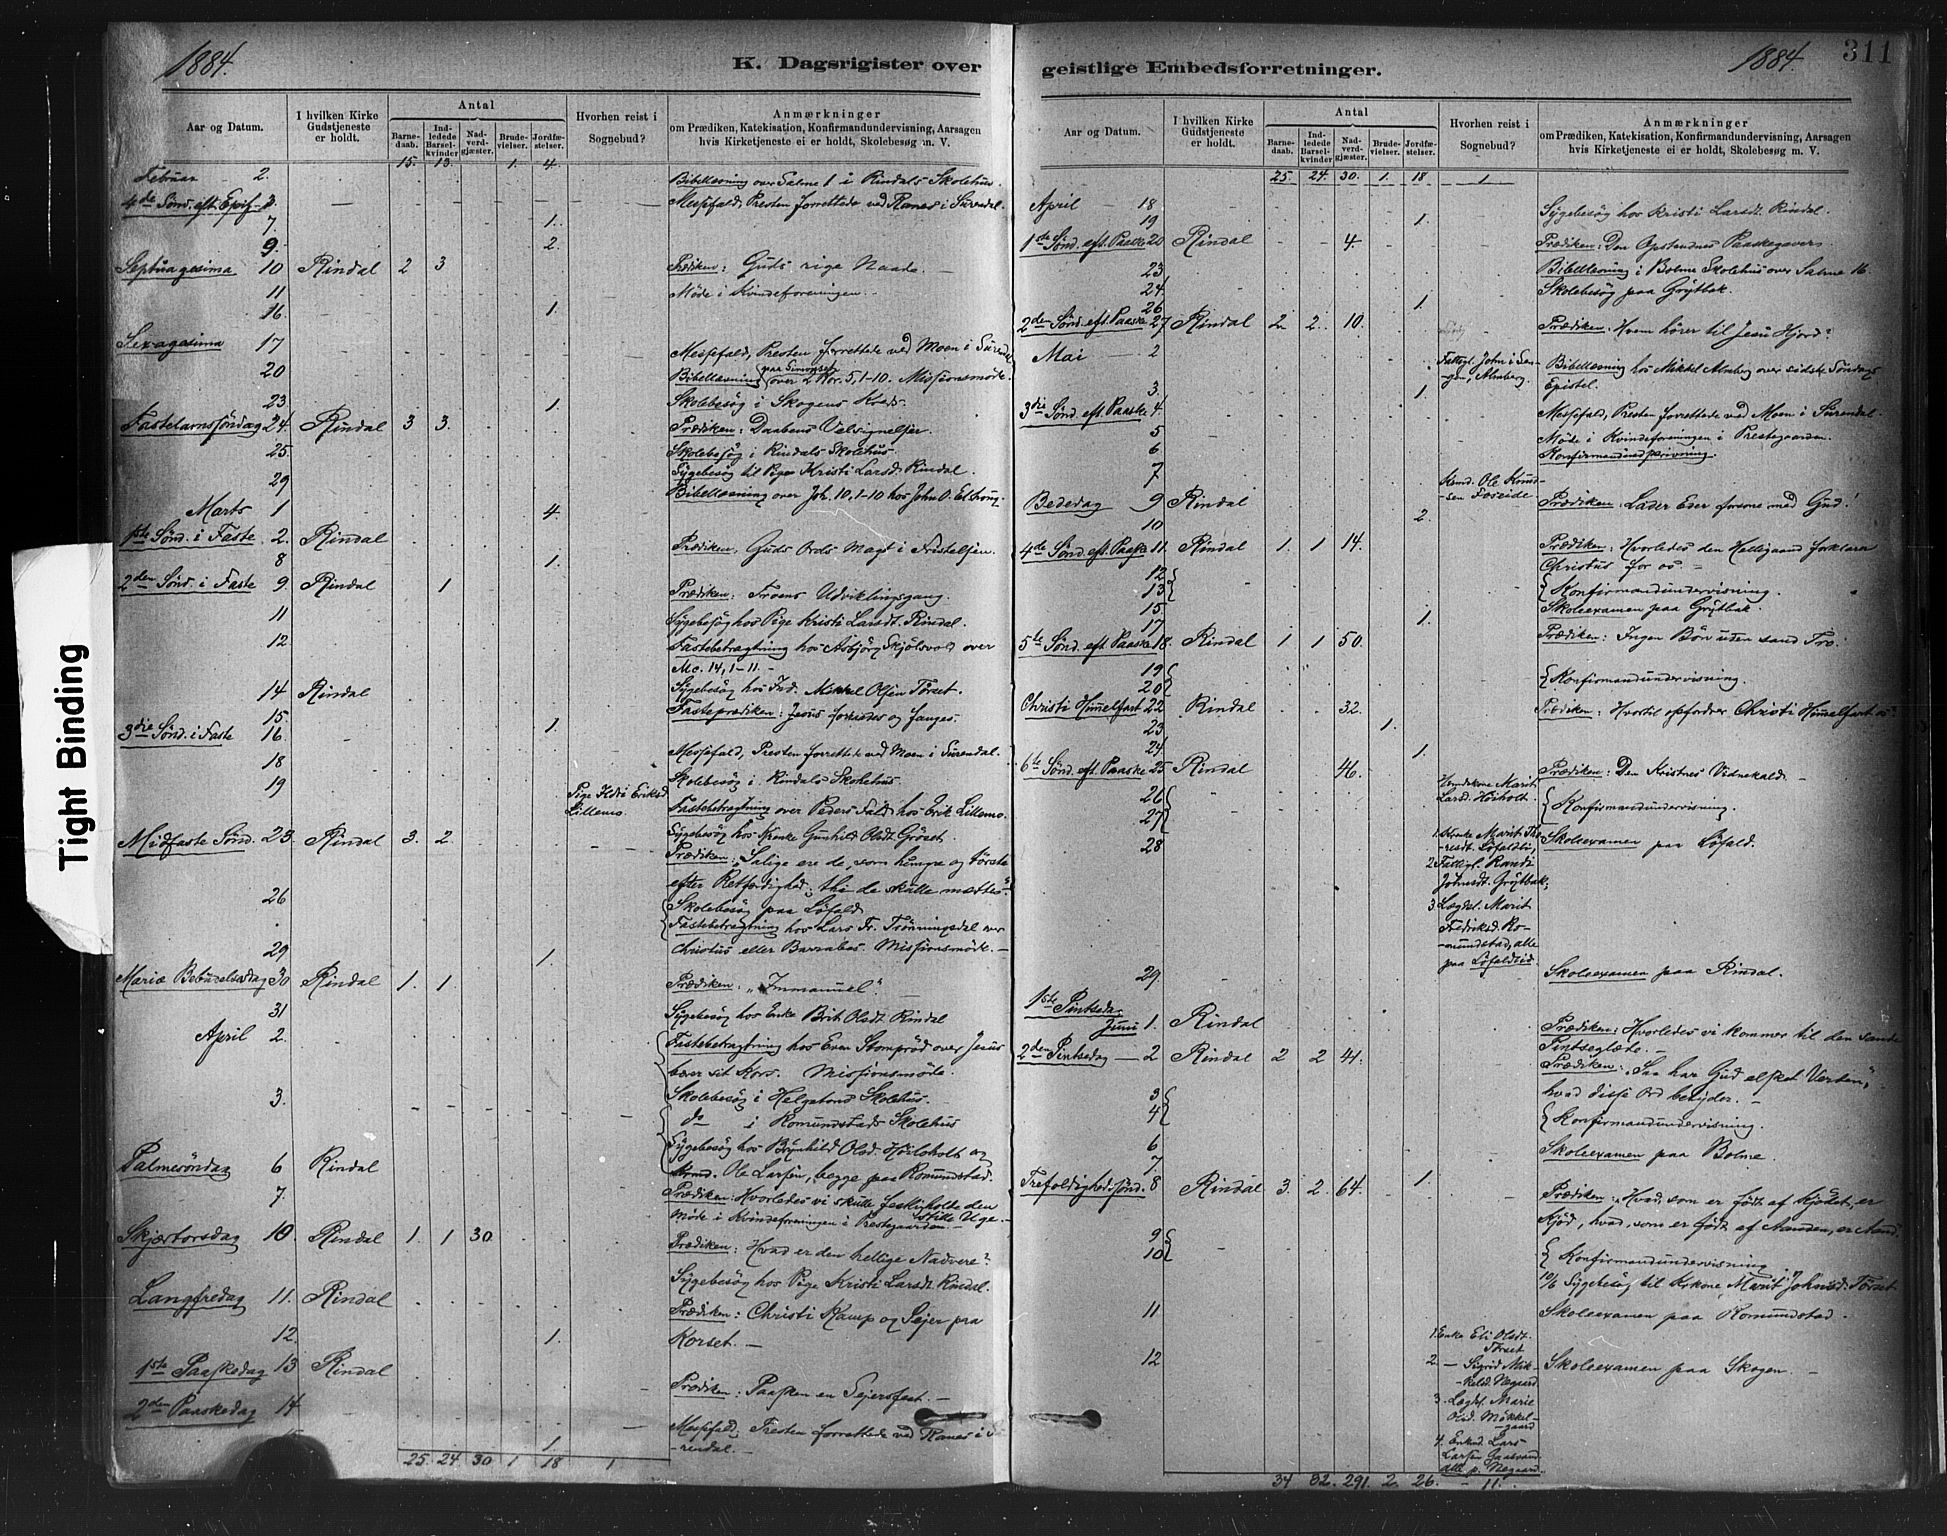 1884.
K. Dagsrigister over
Aar og Datum.
I hvilken Kirke Gudstjeneste er holdt.
Antal
Barnedaab.
Indledede Barselkvinder
Nadverdgjæster.
Brudevielser.
Jordfæstelser.
Hvorhen reist i Sognebud?
Anmærkninger
om Prædiken, Katekisation, Konfirmandundervisning, Aarsagen
hvis Kirketjeneste ei er holdt, Skolebesøg m. V.
15. 13. 1. 4.
Februar 2. Bibellæsning over Salme 1 i Rindals Skolehus.
4de Sønd. eft. Epif. 3. Messefald, Presten forrettede ved Ranes i Surendal.
7. 1.
9. 2.
Septuagesima 10 Rindal 2 3 Prædiken: Guds rige Naade.
11 Møde i Kvindeforeningen.
16. 1.
Sexagesima 17 Messefald, Presten forrettede ved Moen i Surendal
20 Bibellæsning over 2 Kor. 5, 1-10. Missionsmøde.
23 1. Skolebesøg i Skogens Kreds.
Fastelavnssøndag 24. Rindal 3 3. Prædiken: Daabens Velsignelser.
25. Skolebesøg i Rindals Skolehus.
29 Sygebesøg til Pige Kristi Larsdt. Rindal.
Marts 1 4. Bibellæsning over Joh. 10, 1-10 hos John O.
1ste Sønd. i Faste 2. Rindal Prædiken: Guds Ords Magt i Fristelsen.
8 1.
2den Sønd. i Faste 9. Rindal 1 Prædiken: Troens Udviklingsgang.
11 Sygebesøg hos Pige Kristi Larsdt. Rindal.
12 Fastebetragtning hos Asbjørg Skjølsvold over
Mc. 14, 1-11.
14 Rindal Sygebesøg hos Ind. Mikkel Olsen Tørset.
15. 1. Fasteprædiken: Jesus forrædes og fanges.
3die Sønd. i Faste 16 Messefald, Presten forrettede ved Moen i Surendal.
18 Skolebesøg i Rindals Skolehus.
19 Pige Ildri Eriksd. Lillemo. Fastebetragtning over Peders Fald hos Erik Lillemo.
Sygebesøg hos Enke Gunhild Olsdt. Grøset.
Midfaste Sønd. 23. Rindal 3. 2. Prædiken: „Salige ere de, som hungre og tørste
efter Retfærdighed, thi de skulle mættes“.
26 Skolebesøg paa Løfald
Fastebetragtning hos Lars Fr. Trønningsdal over
29 1. Christus eller Barrabas. Missionsmøde.
Mariæ Bebudelsesdag 30 Rindal 1. 1 Prædiken: „Immanuel“.
31 Sygebesøg hos Enke Brit Olsdt. Rindal
April 2. Fastebetragtning hos Even Stomprød over Jesus
bærer sit Kors. Missionsmøde.
3. Skolebesøg i Helgetons Skolehus.
do i Romundstads Skolehus
Sygebesøg hos Brynhild Olsd. Høiloholt og
Palmesøndag 6 Rindal Ole Larsen, begge paa Romundstad.
7. Prædiken: Hvorledes vi skulle feshyholde den stille Uge.
Møde i Kvindeforeningen i Prestegaarden.
Skjærtorsdag 10. Rindal 1. 1 30 Prædiken: Hvad er den hellige Nadvere?
Sygebesøg hos Pige Kristi Larsdt. Rindal.
Langfredag 11. Rindal Prædiken: Christi Kamp og Sejer paa
12. 1. Korset.
1ste Paaskedag 13 Rindal Prædiken: Paasken en Sejersfest.
2den Paaskedag 14 Messefald, Presten forrettede ved Ranes i Su-
1. rendal.
25. 24 30 1 18 1
geistlige Embedsforretninger.
1884.
311
Aar og Datum.
I hvilken Kirke Gudstjeneste er holdt.
Antal
Barnedaab.
Indledede Barselkvinder
Nadverdgjæster.
Brudevielser.
Jordfæstelser.
Hvorhen reist i Sognebud?
Anmærkninger
om Prædiken, Katekisation, Konfirmandundervisning, Aarsagen
hvis Kirketjeneste ei er holdt, Skolebesøg m. V.
25. 24. 30. 1. 18 1
April 18 Sygebesøg hos Kristi Larsdt. Rindal.
19 1.
1ste Sønd. eft. Paaske 20 Rindal 4. Prædiken: Den Opstandnes Paaskegaver.
23 Bibellæsning i Bolme Skolehus over Salme 16.
24 Skolebesøg paa Grytbak.
26 1.
2den Sønd. eft. Paaske 27 Rindal 2. 2. 10. Prædiken: Hvem hører til Jesu Hjord?
Mai 2 Bibellæsning hos Mikkel Almberg over sidste Søndags
3. 1 Epistel.
3die Sønd. eft. Paaske 4. Messefald, Presten forrettede ved Moen i Surendal.
5 Møde i Kvindeforeningen i Prestegaarden.
6 Konfirmandindskrivning.
7 Ole Knudsen Foseide
Bededag 9 Rindal Prædiken: Lader Eder forsone med Gud!
10 2.
4de Sønd. eft. Paaske 11. Rindal 1. 1 14. Prædiken: Hvorledes den Helligaand forklarer
Christus for os
12
13 Konfirmandundervisning.
15 Skoleexamen paa Grytbak.
17 1.
5te Sønd. eft. Paaske 18. Rindal 1 1 50. Prædiken: Ingen Bøn uten sand Tro.
19
20 Konfirmandundervisning.
Christi Himmelfart 22 Rindal 32. Prædiken: Hvortil opfordrer Christi Himmelfart os?
23 1.
24 1.
6te Sønd. eft. Paaske 25 Rindal 46. Prædiken: Den Kristnes Vidnekald.
26 Marit Larsd. Høiholt.
27 Konfirmandundervisning.
28 1. Enke Marit Tho- Skoleexamen paa Løfald.
resdt. Løfaldli,
2 Fattigl. Randi
Johnsdt. Grytbak,
3. Lægdsl. Marit
Fredriksd. Ro-
mundstad, alle
paa Løfaldlid.
29 Skoleexamen paa Rindal.
1ste Pintsedag
Juni 1. Rindal Prædiken: Hvorledes vi kommer til den sande
Pintseglæde.
2den Pintsedag 2 Rindal 2 2 41. Prædiken: „Saa har Gud elsket Verden“,
hvad disse Ord betyder.
3
4 Konfirmandundervisning.
6 Skoleexamen paa Bolme.
7 1.
Trefoldighedssønd. 8 Rindal 3. 2. 64. Prædiken: „Hvad som er født af Kjødet, er
Kjød, hvad som er født af Aanden, er Aand.“
9
10 Konfirmandundervisning.
10/6 Sygebesøg til Kekone Marit Johnsd. Tørset
11 Skoleexamen paa Romundstad.
12 1. Enke Eli Olsdt. Skoleexamen paa Skogen
Tørset
2. Sigrid Mik-
keld. Negaard
3. Lægdsl. Marie
Olsd. Møkkel-
gaard
4. Lars
Larsen
alle p. Negaard.
34 32. 291. 2. 26. 11.
Tight Binding